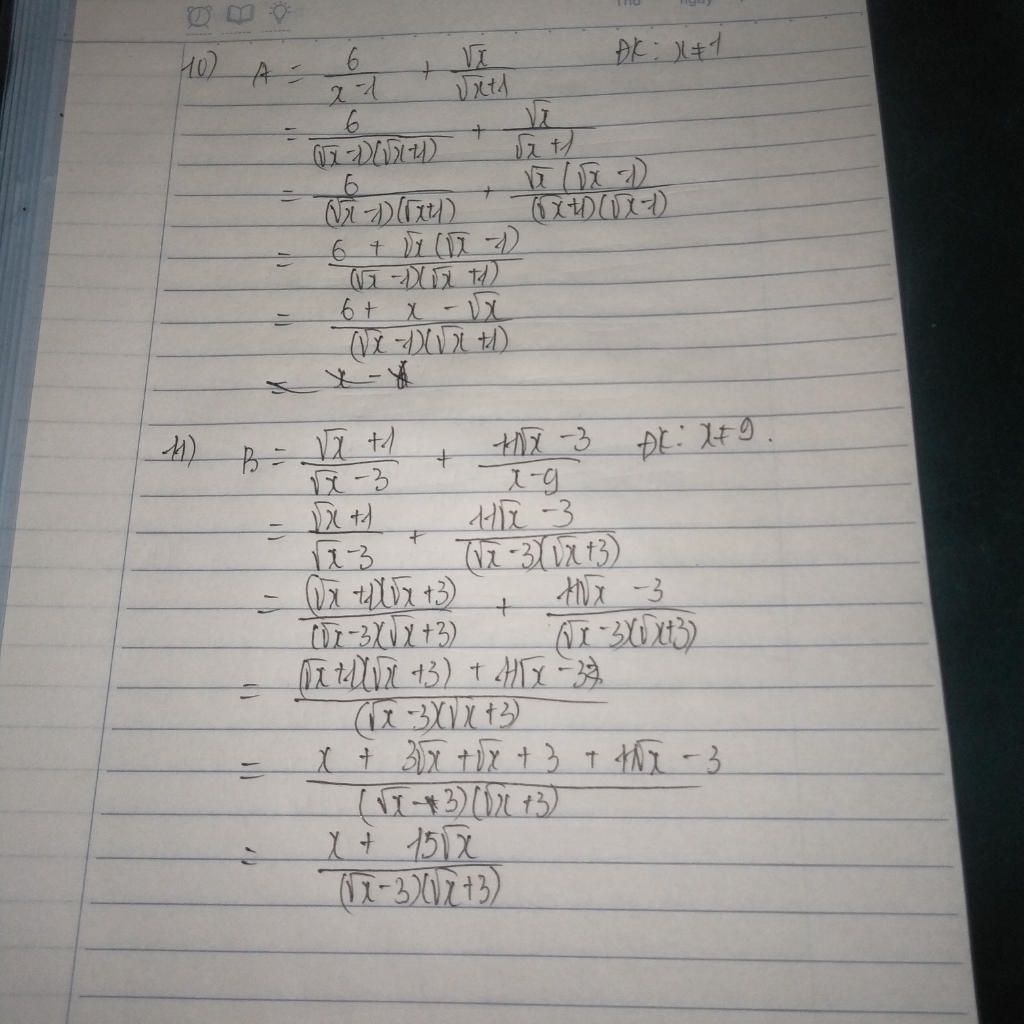 Thứ ngày
10) A = 6/(x-1) + √x/(√x+1) ĐK: x≠1
= 6/((√x-1)(√x+1)) + √x/(√x+1)
= 6/((√x-1)(√x+1)) + √x(√x-1)/((√x+1)(√x-1))
= (6 + √x(√x-1))/((√x-1)(√x+1))
= (6 + x - √x)/((√x-1)(√x+1))
= x -
11) B = (√x+1)/(√x-3) + (11√x-3)/(x-9) ĐK: x≠9.
= (√x+1)/(√x-3) + (11√x-3)/((√x-3)(√x+3))
= (√x+1)(√x+3)/((√x-3)(√x+3)) + (11√x-3)/((√x-3)(√x+3))
= ((√x+1)(√x+3) + 11√x-3)/((√x-3)(√x+3))
= (x + 3√x + √x + 3 + 11√x - 3)/((√x-3)(√x+3))
= (x + 15√x)/((√x-3)(√x+3))